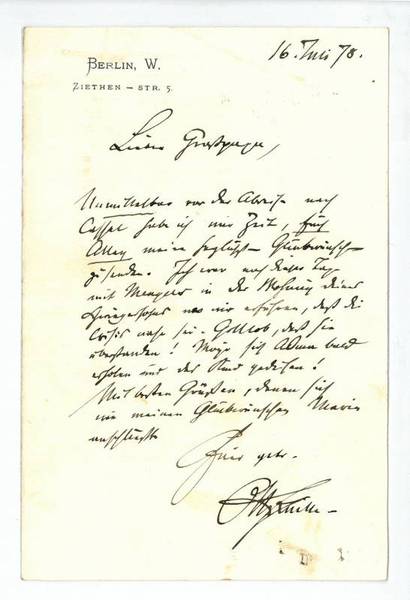 BERLIN, W.
ZIETHEN – STR. 5.
16. Juli 78.
Lieber Großpapa,
Unmittelbar vor der Abreise nach
Cassel habe ich nur Zeit, Euch
Allen meine Glückwünsche
zusenden. Ich war noch dieser Tage
mit Menzel in der Wohnung deines
wo wir erfuhren, daß die
Crisis nahe sei. Gottlob, daß sie
überstanden! Möge sich Anna bald
erholen und das Kind gedeihen!
Mit besten Grüßen, denen sich
mit meinen Glückwünschen Marie
anschließt
Euer getr.